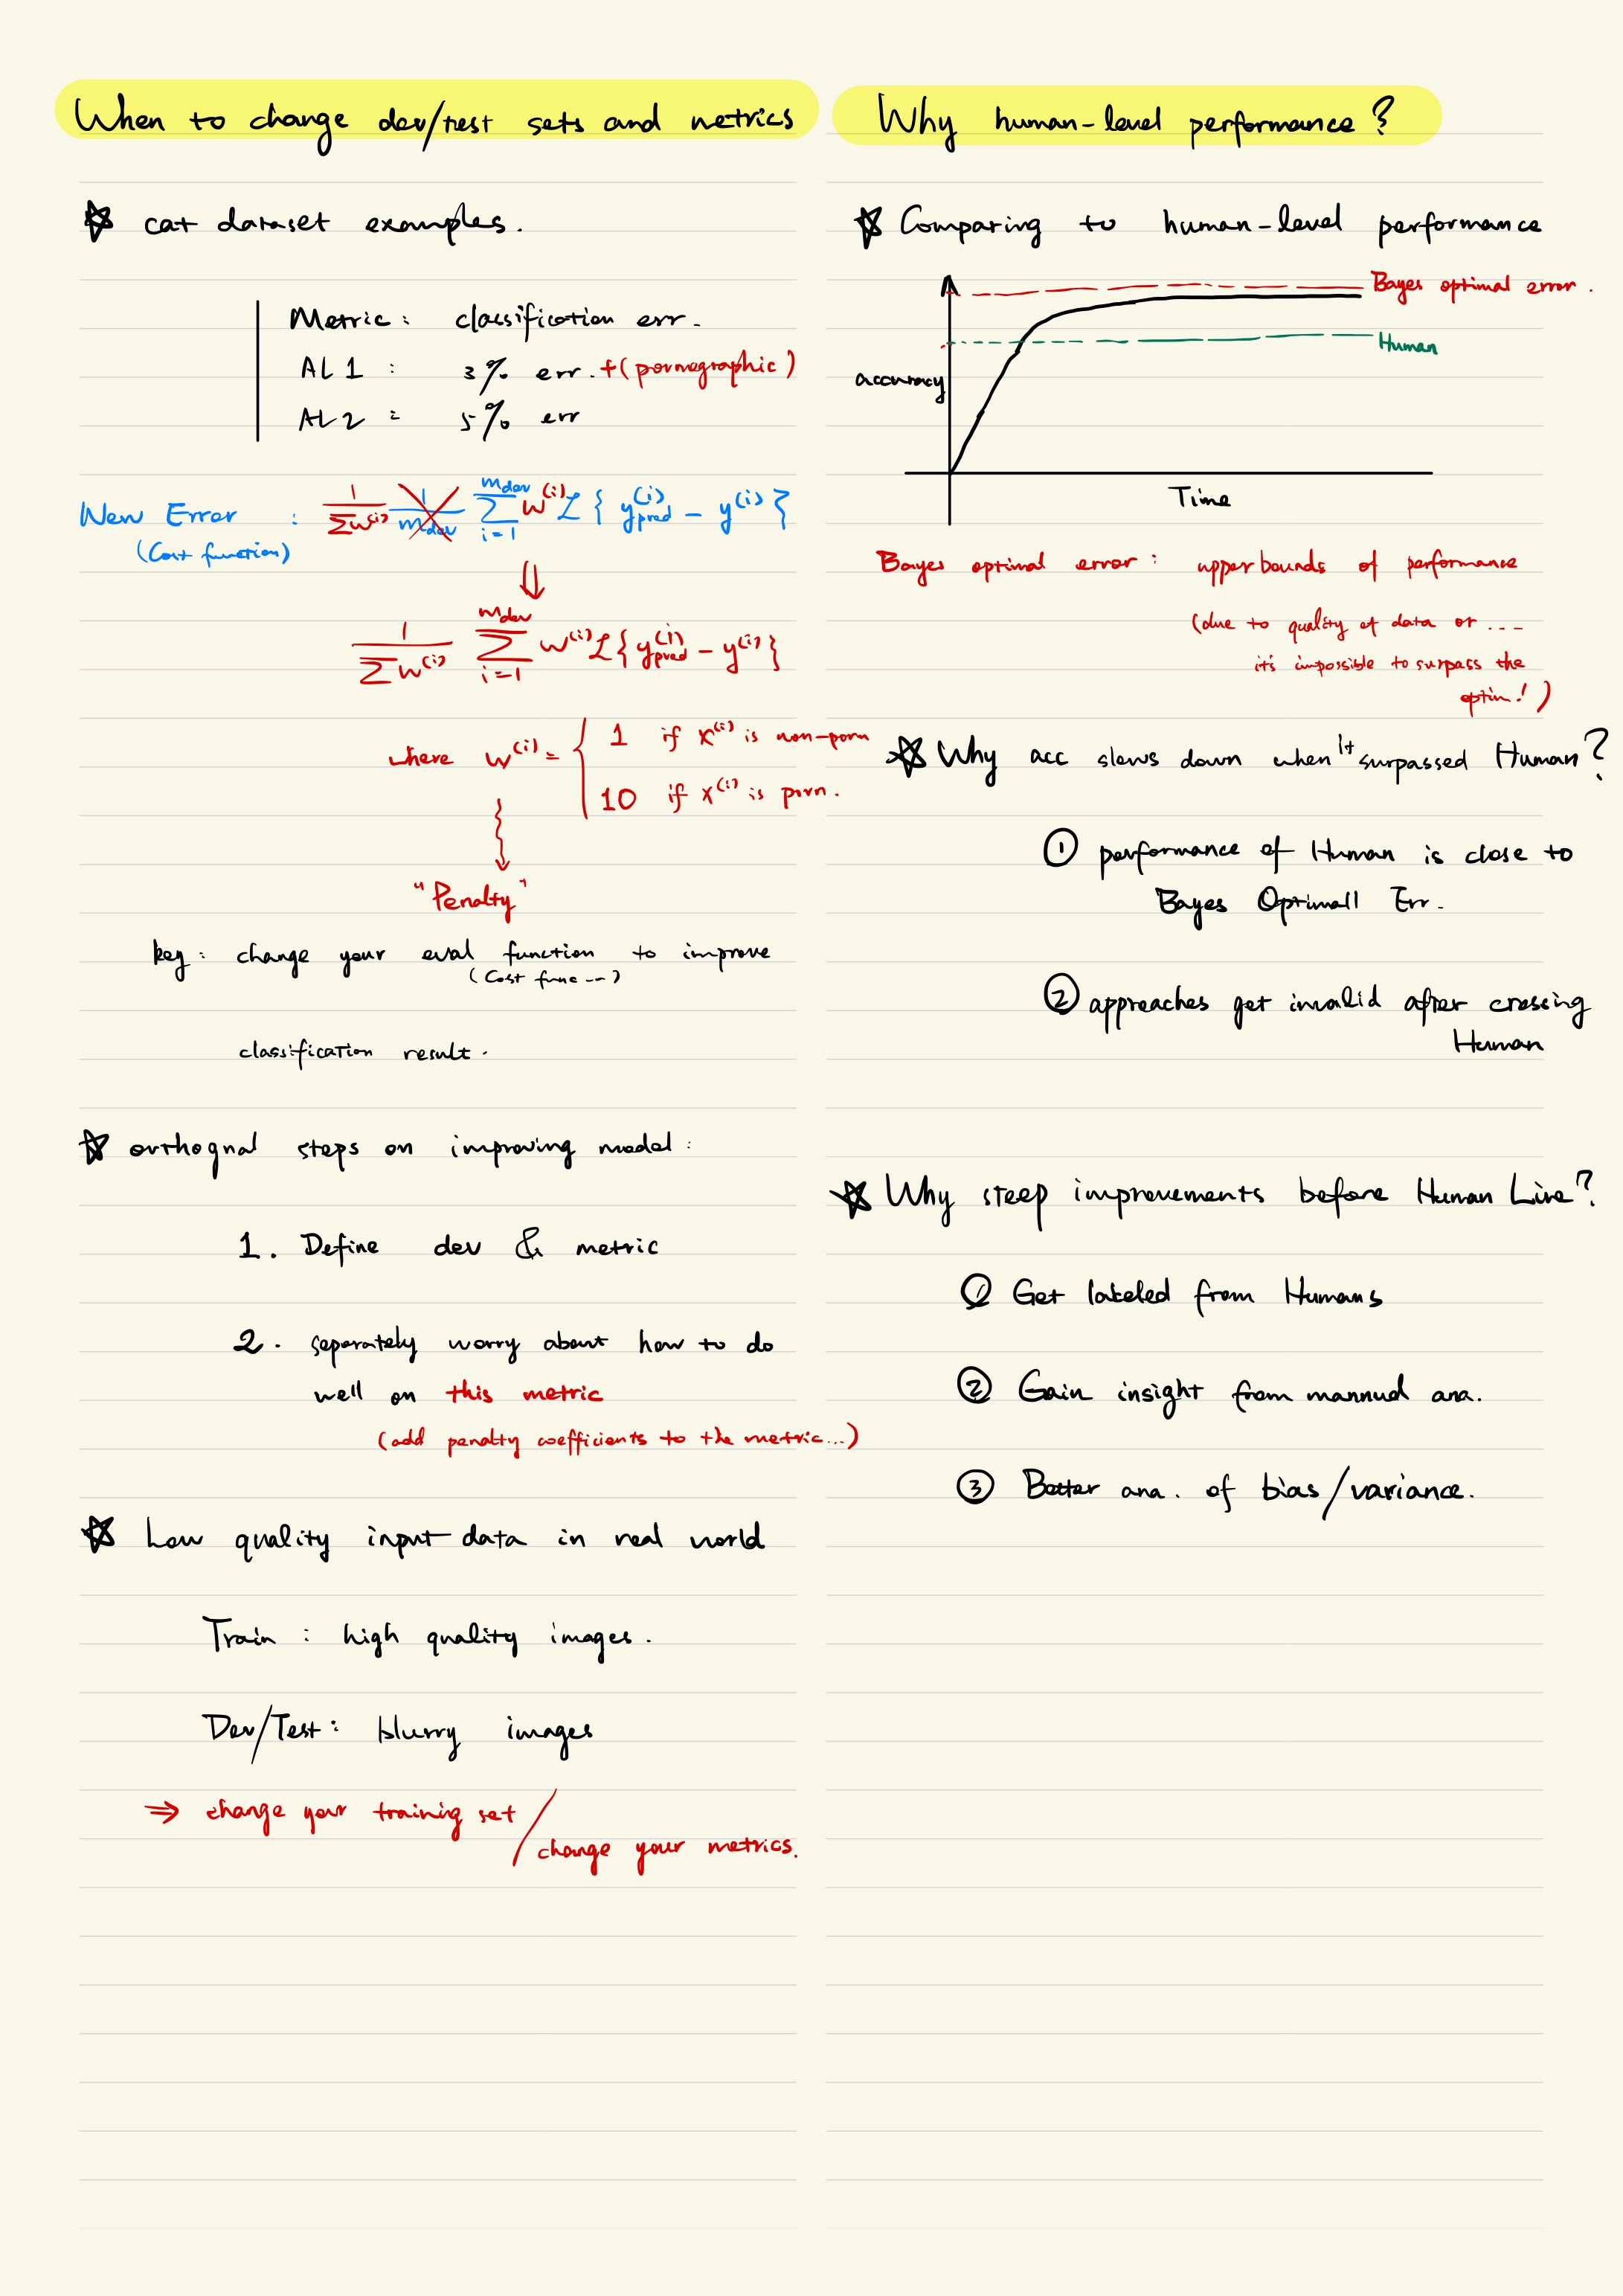 When to change dev/test sets and metrics
☆ cat dataset examples.
Metric : classification err.
AL 1 : 3% err. +(pornographic)
AL 2 : 5% err
New Error : 1/Σw⁽ⁱ⁾ 1/m_dev Σ_{i=1}^{m_dev} w⁽ⁱ⁾ L { y_pred⁽ⁱ⁾ - y⁽ⁱ⁾ }
(Cost function)
⇓
1/Σw⁽ⁱ⁾ Σ_{i=1}^{m_dev} w⁽ⁱ⁾ L { y_pred⁽ⁱ⁾ - y⁽ⁱ⁾ }
where w⁽ⁱ⁾ = { 1 if x⁽ⁱ⁾ is non-porn
10 if x⁽ⁱ⁾ is porn.
"Penalty"
key : change your eval function to improve
(Cost func --)
classification result.
☆ orthognal steps on improving model :
1. Define dev & metric
2. separately worry about how to do
well on this metric
(add penalty coefficients to the metric...)
☆ Low quality input data in real world
Train : high quality images.
Dev/Test : blurry images
⇒ change your training set /
change your metrics.
Why human-level performance ?
☆ Comparing to human-level performance
Bayes optimal error.
Human
accuracy
Time
Bayes optimal error : upper bounds of performance
(due to quality of data or ---
it's impossible to surpass the
optim! )
☆ Why acc slows down when it surpassed Human?
① performance of Human is close to
Bayes Optimall Err.
② approaches get invalid after crossing
Human
☆ Why steep improvements before Human Line?
① Get labeled from Humans
② Gain insight from mannud ana.
③ Better ana. of bias/variance.